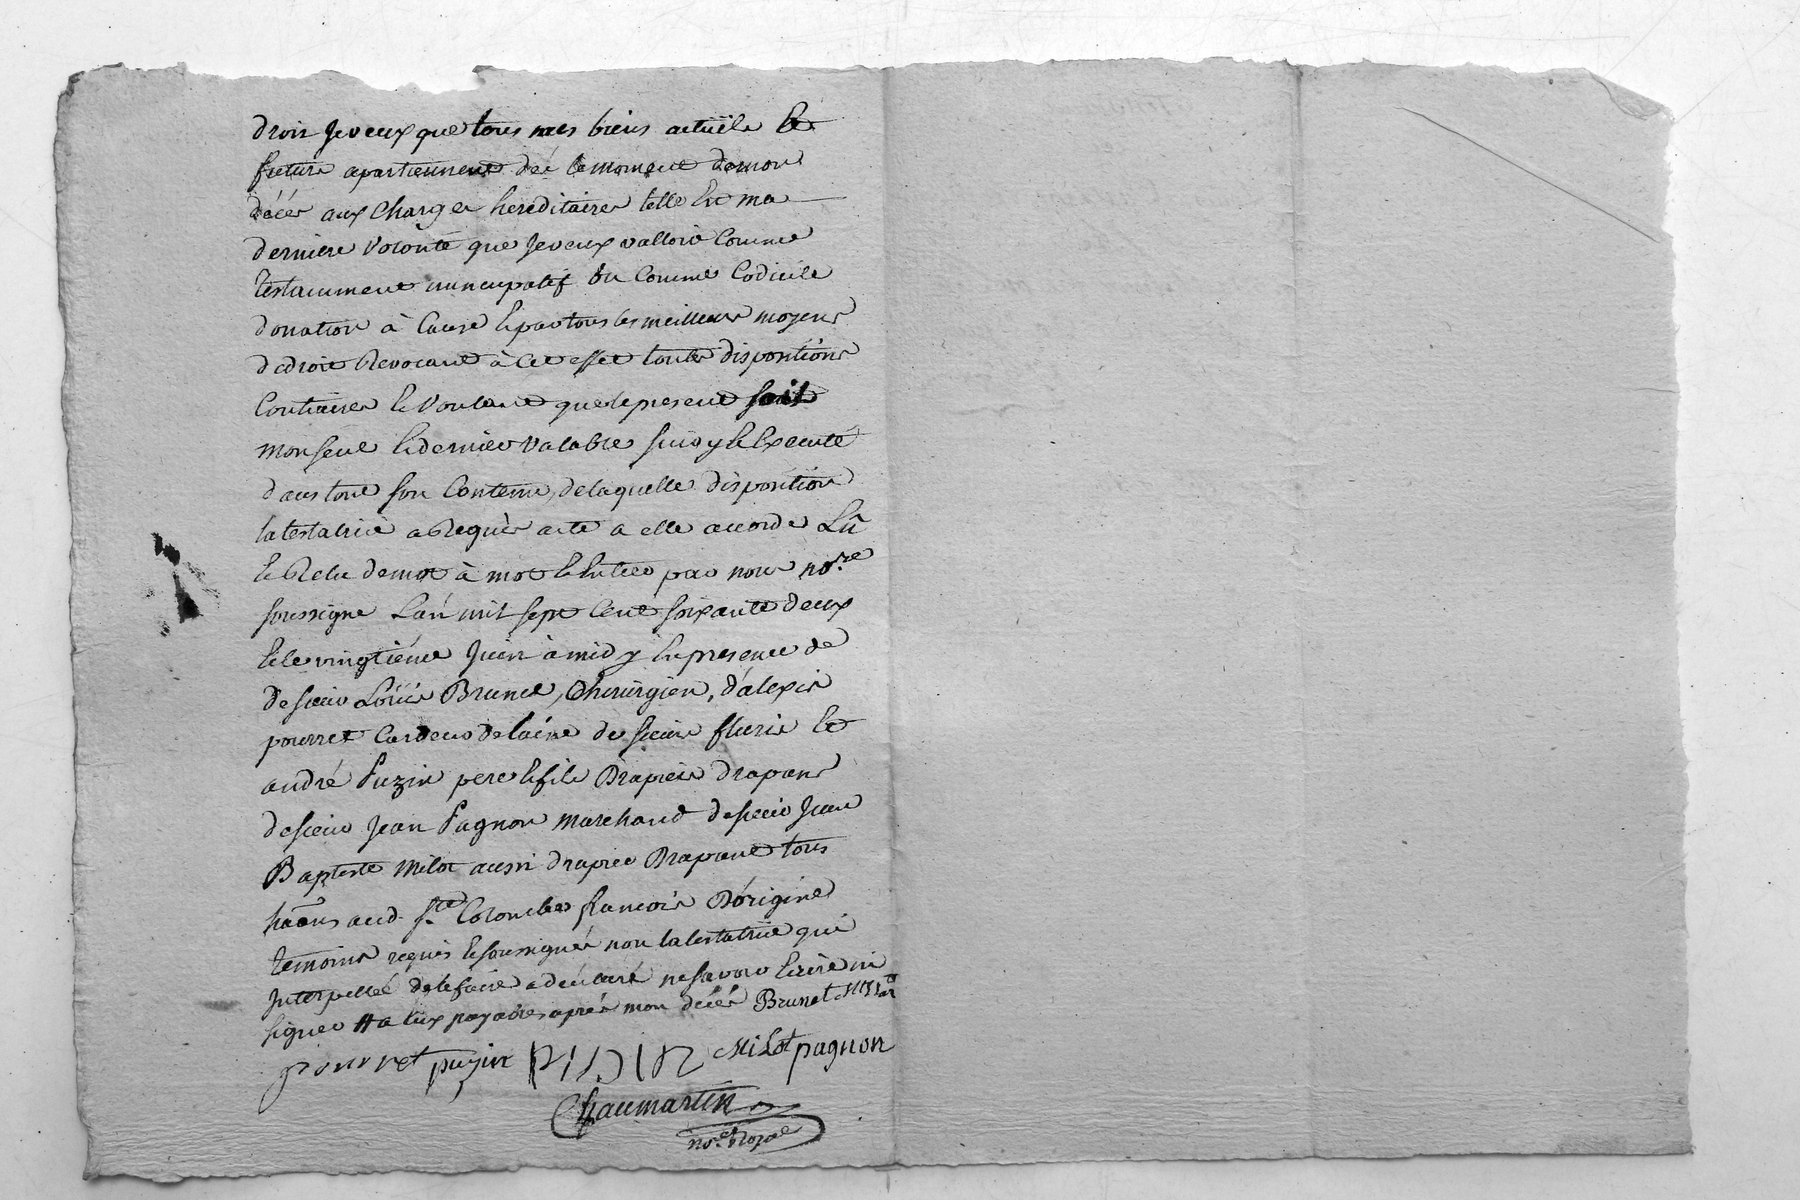 droit Je veux que tous mes biens actuëls Et
futurs apartiennent dés le moment de mon
décés aux Charges hereditaires telle Est ma
derniere Volonté que Je veux valloir Comme
testamment nuncupatif ou Comme Codicile
donation à Cause Et par tous les meilleurs moyens
de droit Revocant à Cet effet toutes dispositions
Contraires Et Voulant que le present soit
mon seul Et dernier Valable suivy Et Executé
dans tout son Contenu, de laquelle disposition
la testatrice a Requis acte a elle accordé Lû
Et Relu de mot à mot Et Entier par nous nore
soussigné L'an mil sept Cent soixante deux
Et le vingtiéme Juin à midy En presence de
de sieur Loüis Brunet, Chirurgien, d'alexis
pourret Cardeur de laine de sieurs fleuris Et
andré Puzin pere Et fils Drapiers drapans
de sieur Jean Pagnon marchand de sieur Jean
Baptiste Milot aussi drapier Drapant tous
haans aud. Ste Colombe françois D'origine
temoins requis Et soussignés non la testatrice qui
Interpellée de le faire a declaré ne savoir Ecrire ni
signer # a eux payables aprés mon décés Brunet
pourret puzin Milot pagnon
Chaumartin
nore Royal